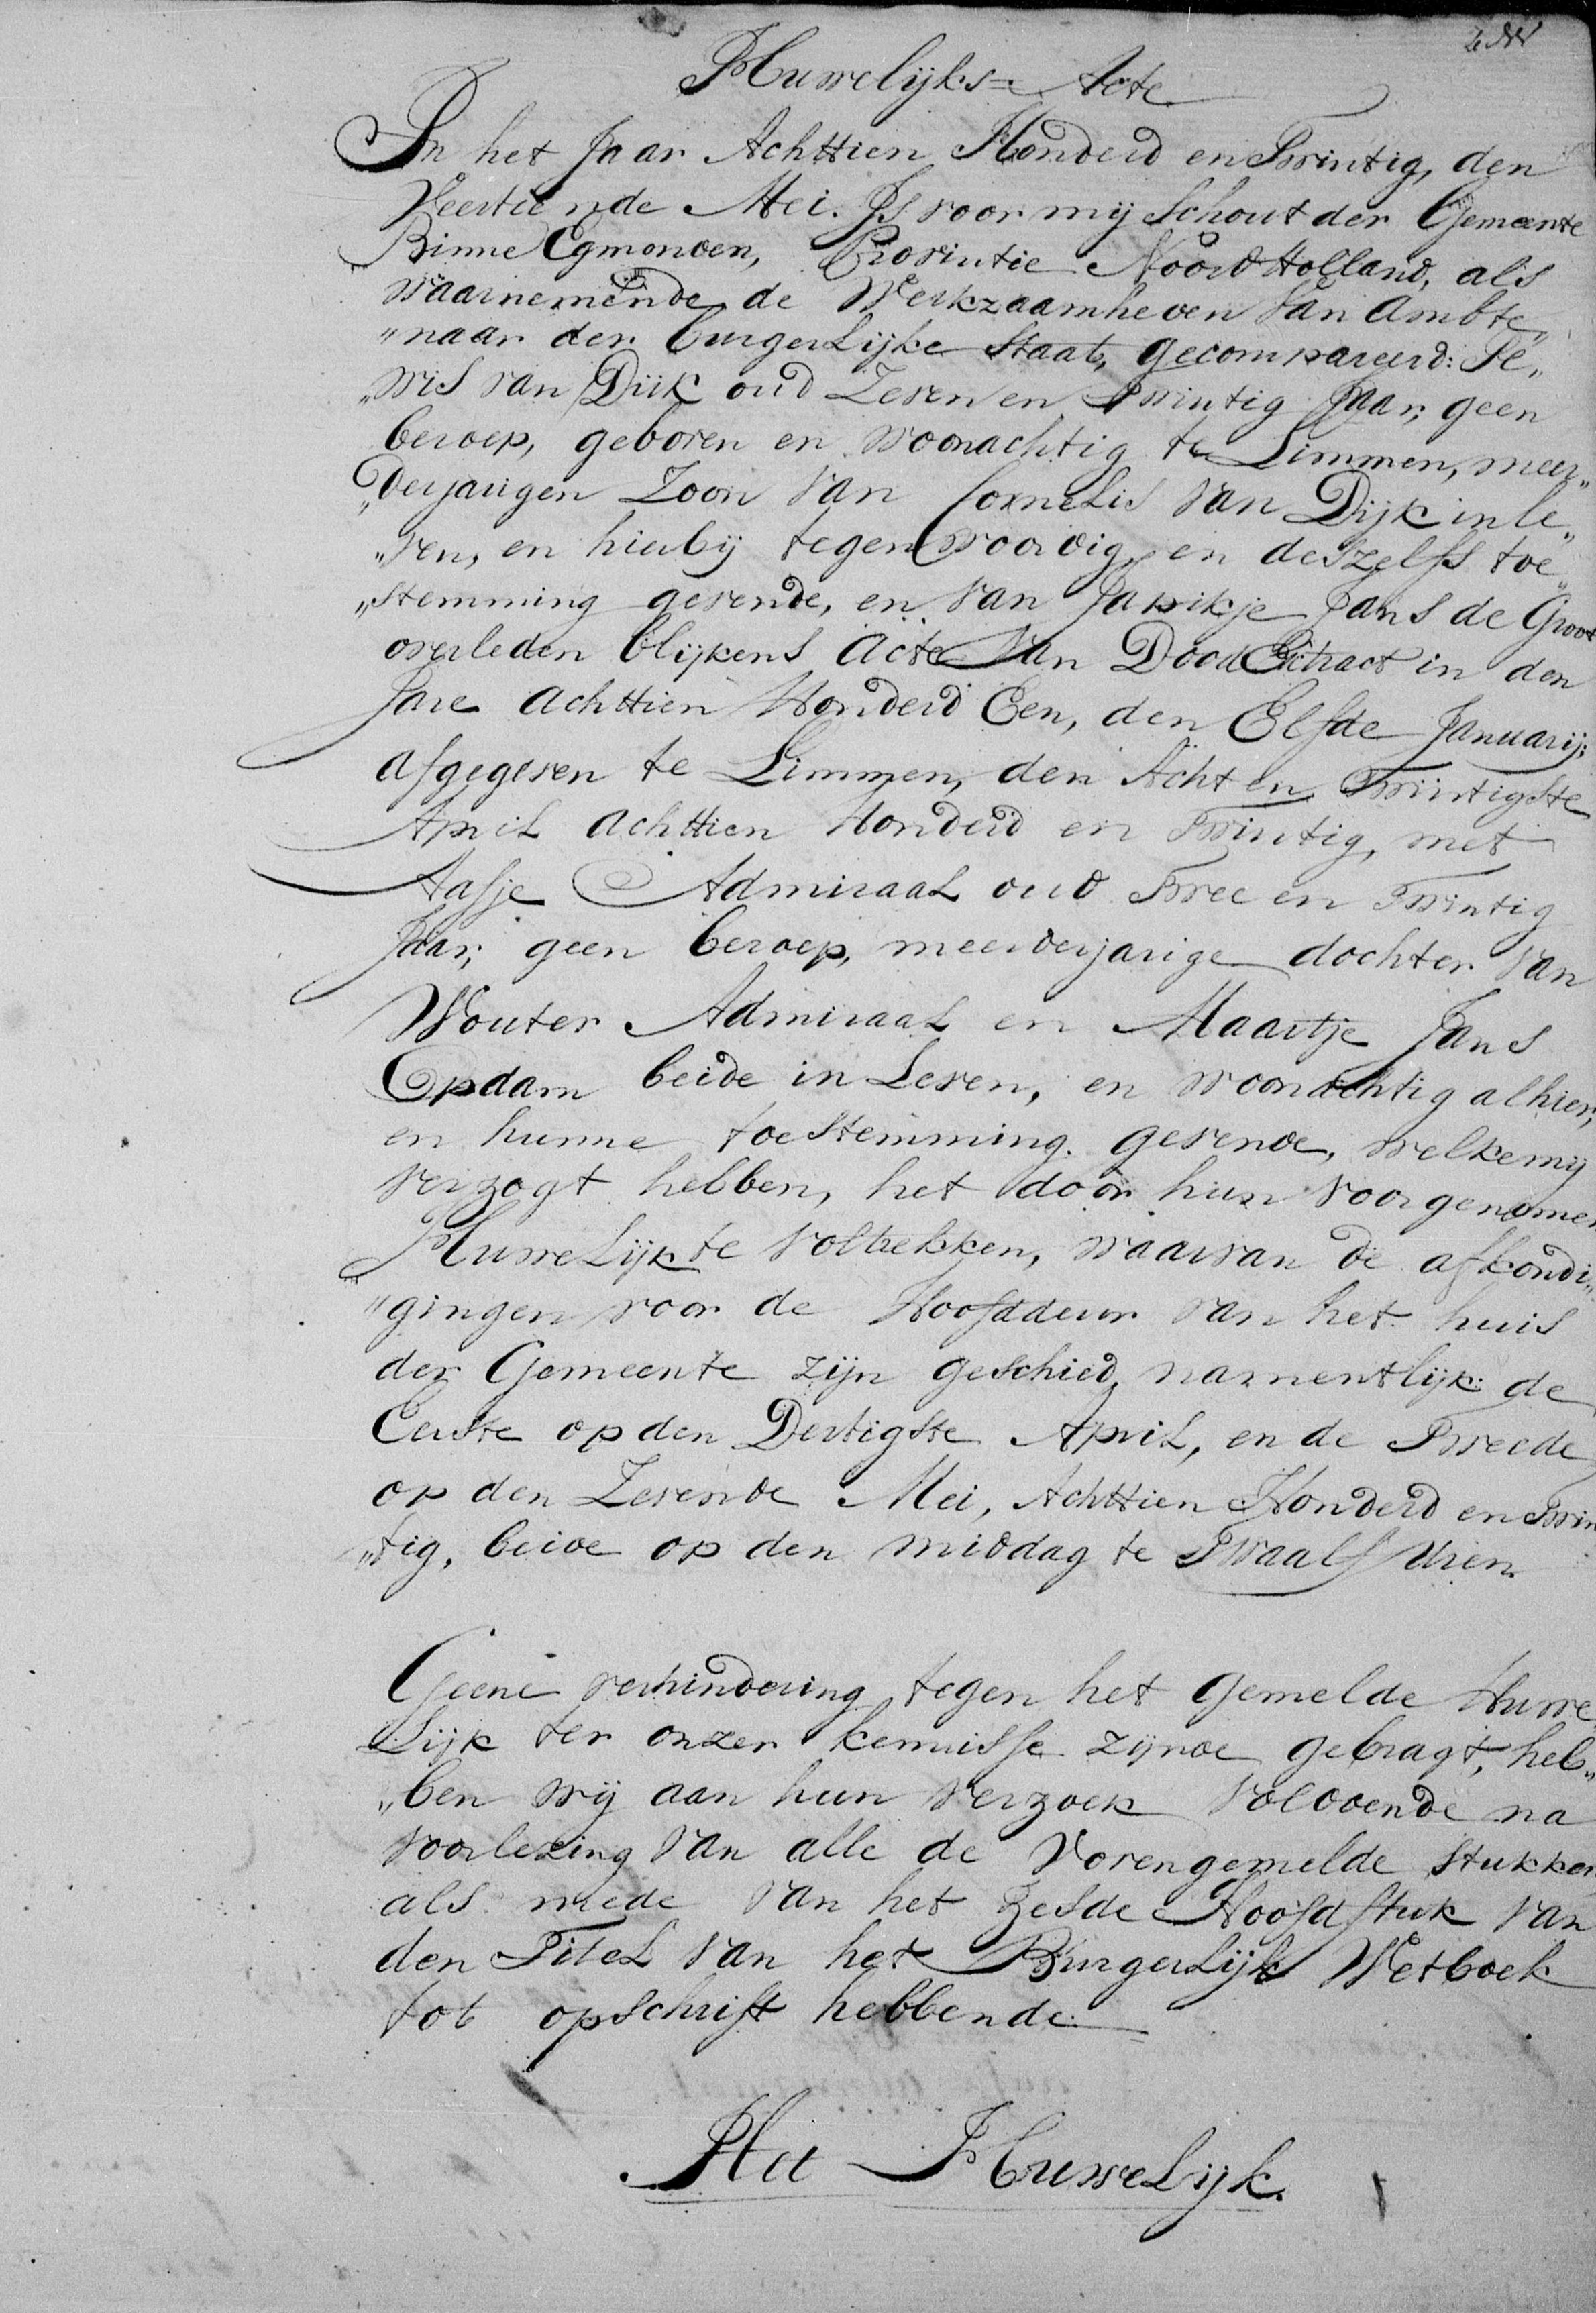 Huwelijks=Acte
In het Jaar Achttien Honderd en Twintig, den
Veertiende Mei. Is voor mij Schout der Gemeente
Binne Egmonden, Provintie Noord Holland, als
waarnemende de Werkzaamheden van Ambte„
„naar der burgerLijke Staat, gecompareerd: Te„
„wis van Dijk oud Zeven en Twintig Jaar, geen
beroep, geboren en woonachtig te Limmen, meer„
„derjarigen Zoon van CorneLis van Dijk in le„
„ven, en hierbij tegenwoordig, en deszelfs toe„
„stemming gevende, en van Japikje Jans de Groot
overleden blijkens Acte van Dood Extract in den
Jare achttien Honderd Een, den Elfde Januarij;
afgegeven te Limmen, den Acht en Twintigste
April achttien Honderd en Twintig, met
Aafje Admiraal oud Twee en Twintig
Jaar, geen beroep, meerderjarige dochter van
Wouter Admiraal en Maartje Jans
Opdam beide in Leven, en woonachtig alhier,
en hunne toestemming gevende, welke mij
verzogt hebben, het door hun voorgenomen
HuweLijk te voltrekken, waarvan de afkondi„
„gingen voor de Hoofddeur van het huis
der Gemeente zijn geschied, namentlijk: de
Eerste op den Dertigste April, en de Tweede
op den Zevende Mei, Achttien Honderd en Twin
„tig, beide op den middag te Twaalf Uren.
Geene verhindering tegen het gemelde Huwe
Lijk ter onzer kennisse zijnde gebragt, heb„
„ben wij aan hun verzoek voldoende na
voorlezing van alle de Vorengemelde stukken
als mede van het zesde Hoofdstuk van
den Titel van het BurgerLijk Wetboek
tot opschrift hebbende
Het HuweLijk.